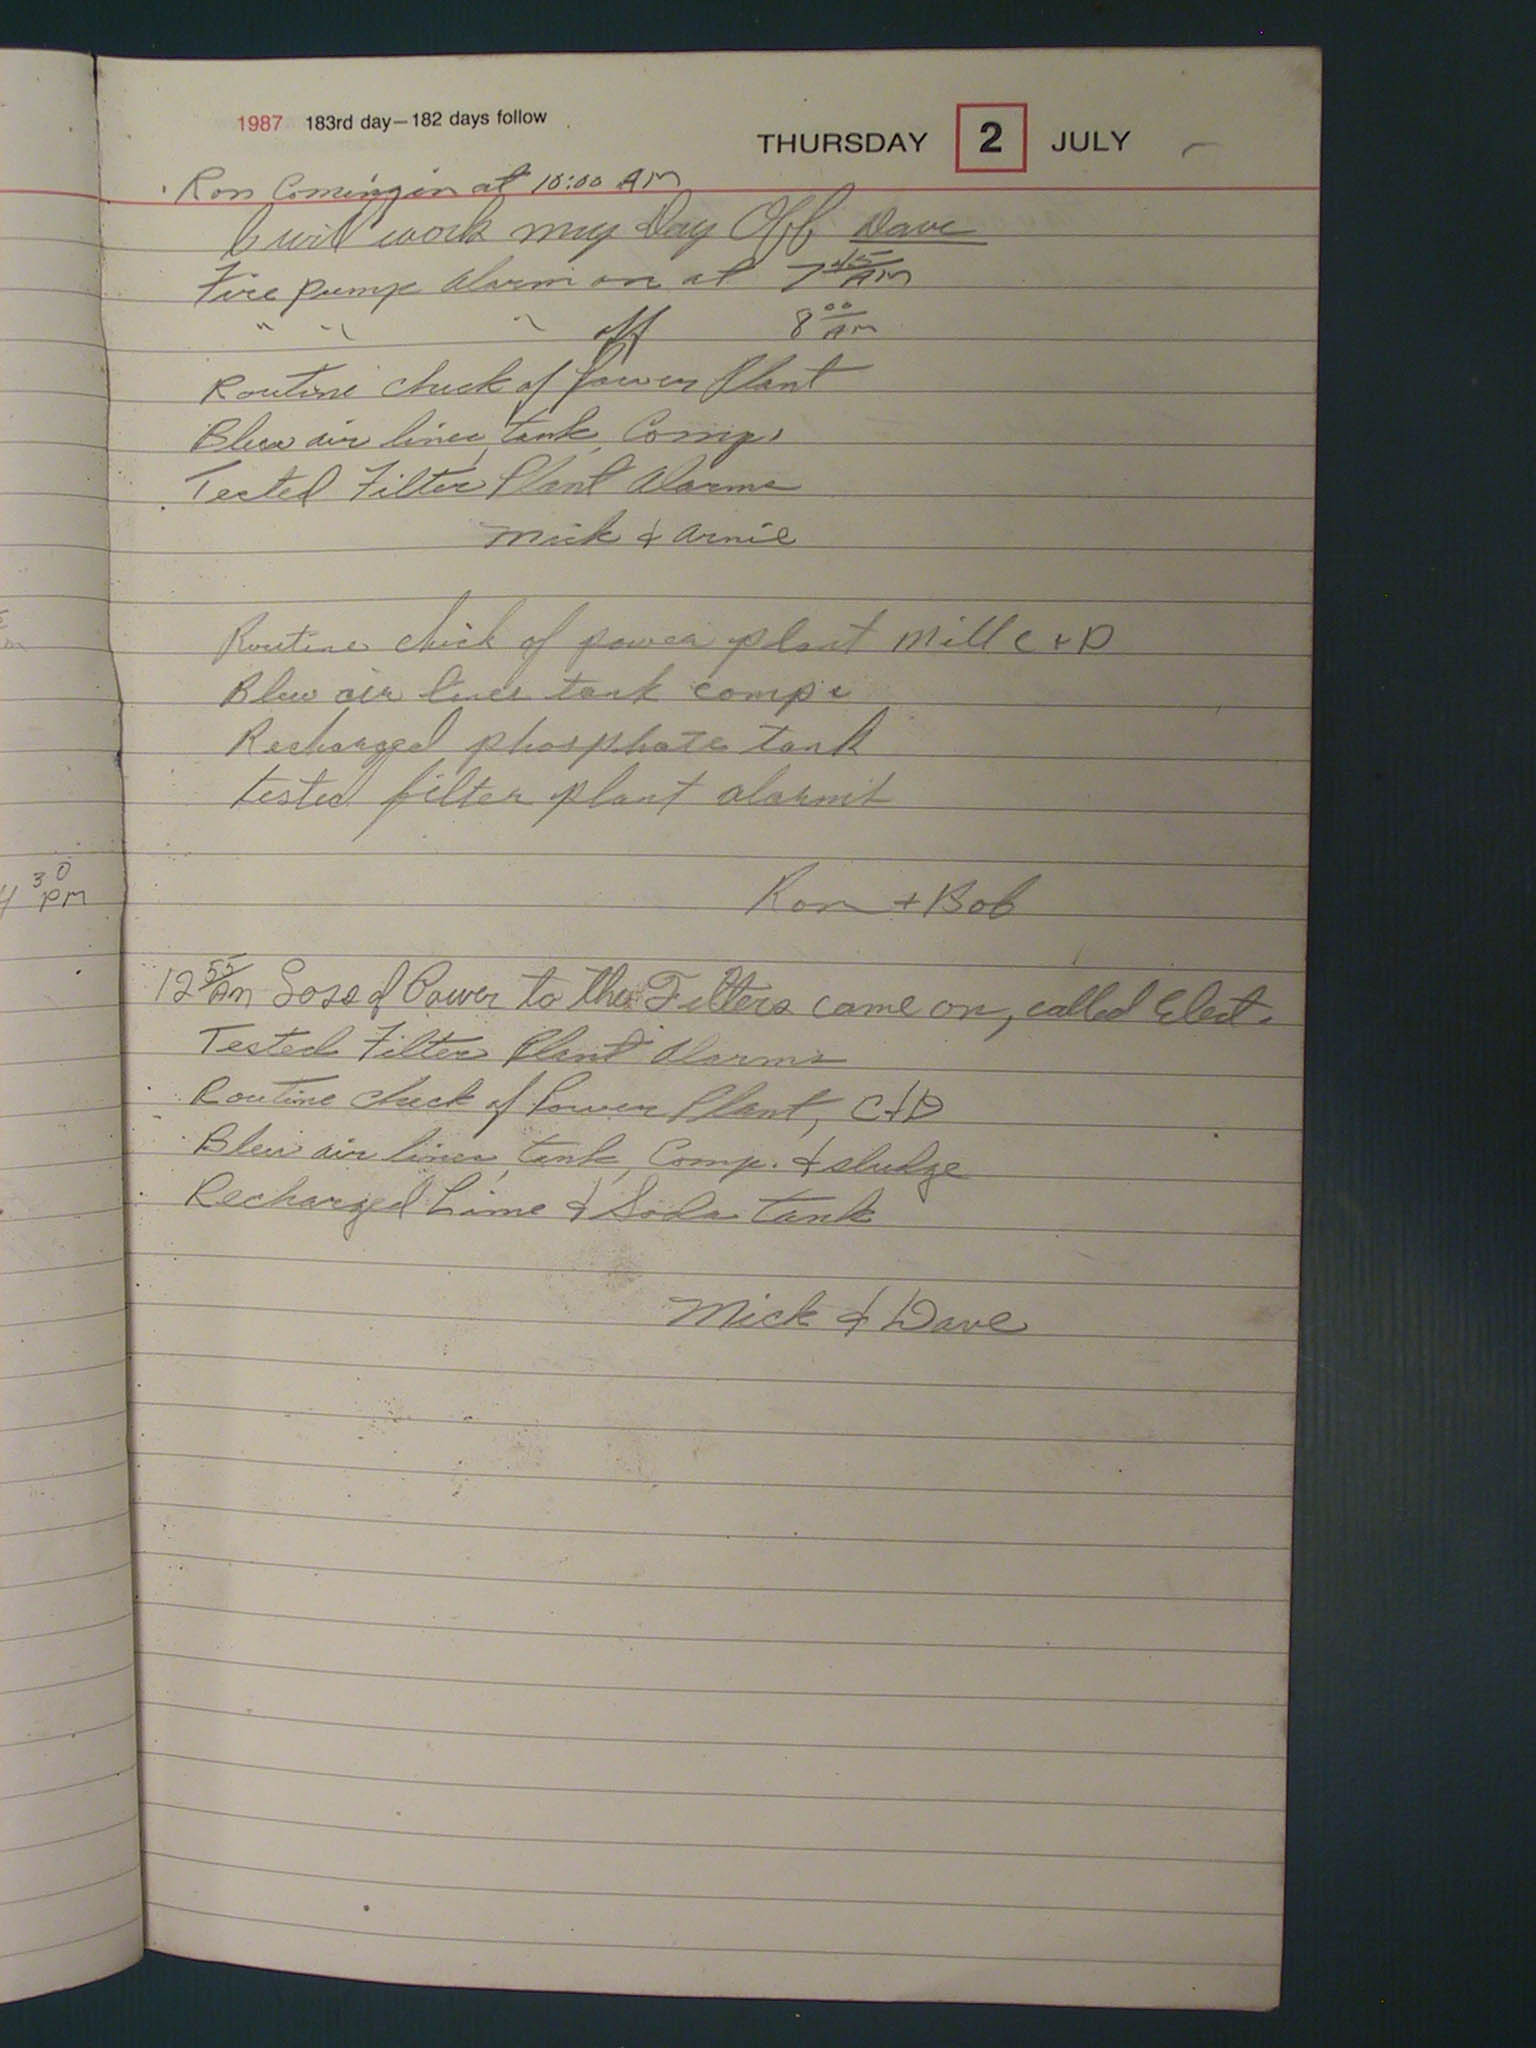 1987 183rd day—182 days follow
THURSDAY 2 JULY
Ron Coming in at 10:00 AM
I will work my Day Off Dave
Fire pump alarm on at 7 45 AM
" " " off 8 00 AM
Routine check of Power Plant
Blew air lines, tank, Comp.
Tested Filter Plant Alarms
Mick & Arnie
Routine check of power plant Mill C + D
Blew air lines tank comps
Recharged phosphate tank
tested filter plant alarms
Ron + Bob
12 55 AM Loss of Power to the Filters came on, called Elect.
Tested Filter Plant Alarms
Routine check of Power Plant, C & D
Blew air lines, tank, Comp. & sludge
Recharged Lime & Soda tank
Mick & Dave
4 30 PM